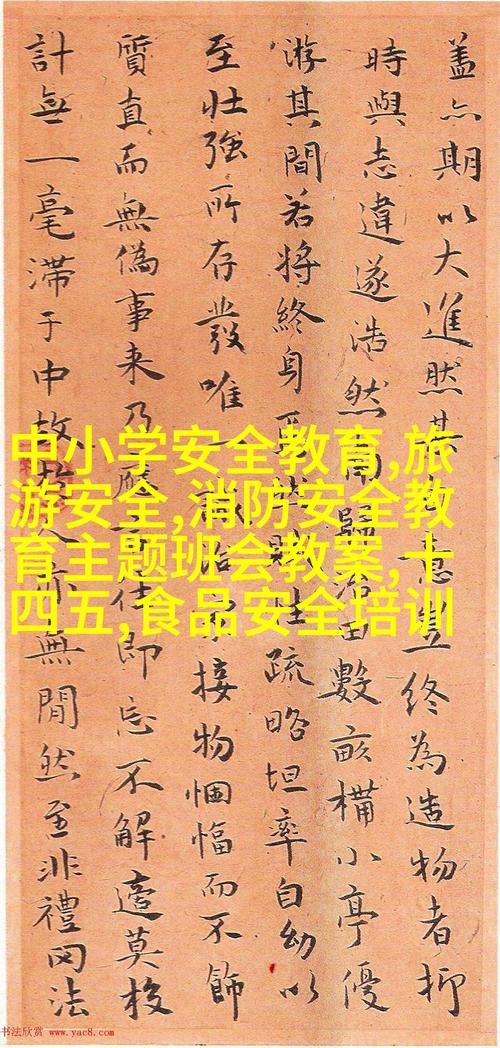 中小学安全教育,旅
游安全,消防安全教
育主题班会教案,十
四五,食品安全培训
盖亦期以大進然其意豈終為造物者抑
時與志違遂浩然歸田數畝構小亭優
游其間若將終身焉賦性疏略坦率自幼以
至壯強所存發唯一接物悃愊而不飾
質直而無偽事来乃應即忘不解莫
計無一毫滯于中故人亦無間然至非禮罔法
书法欣赏 www.yac8.com